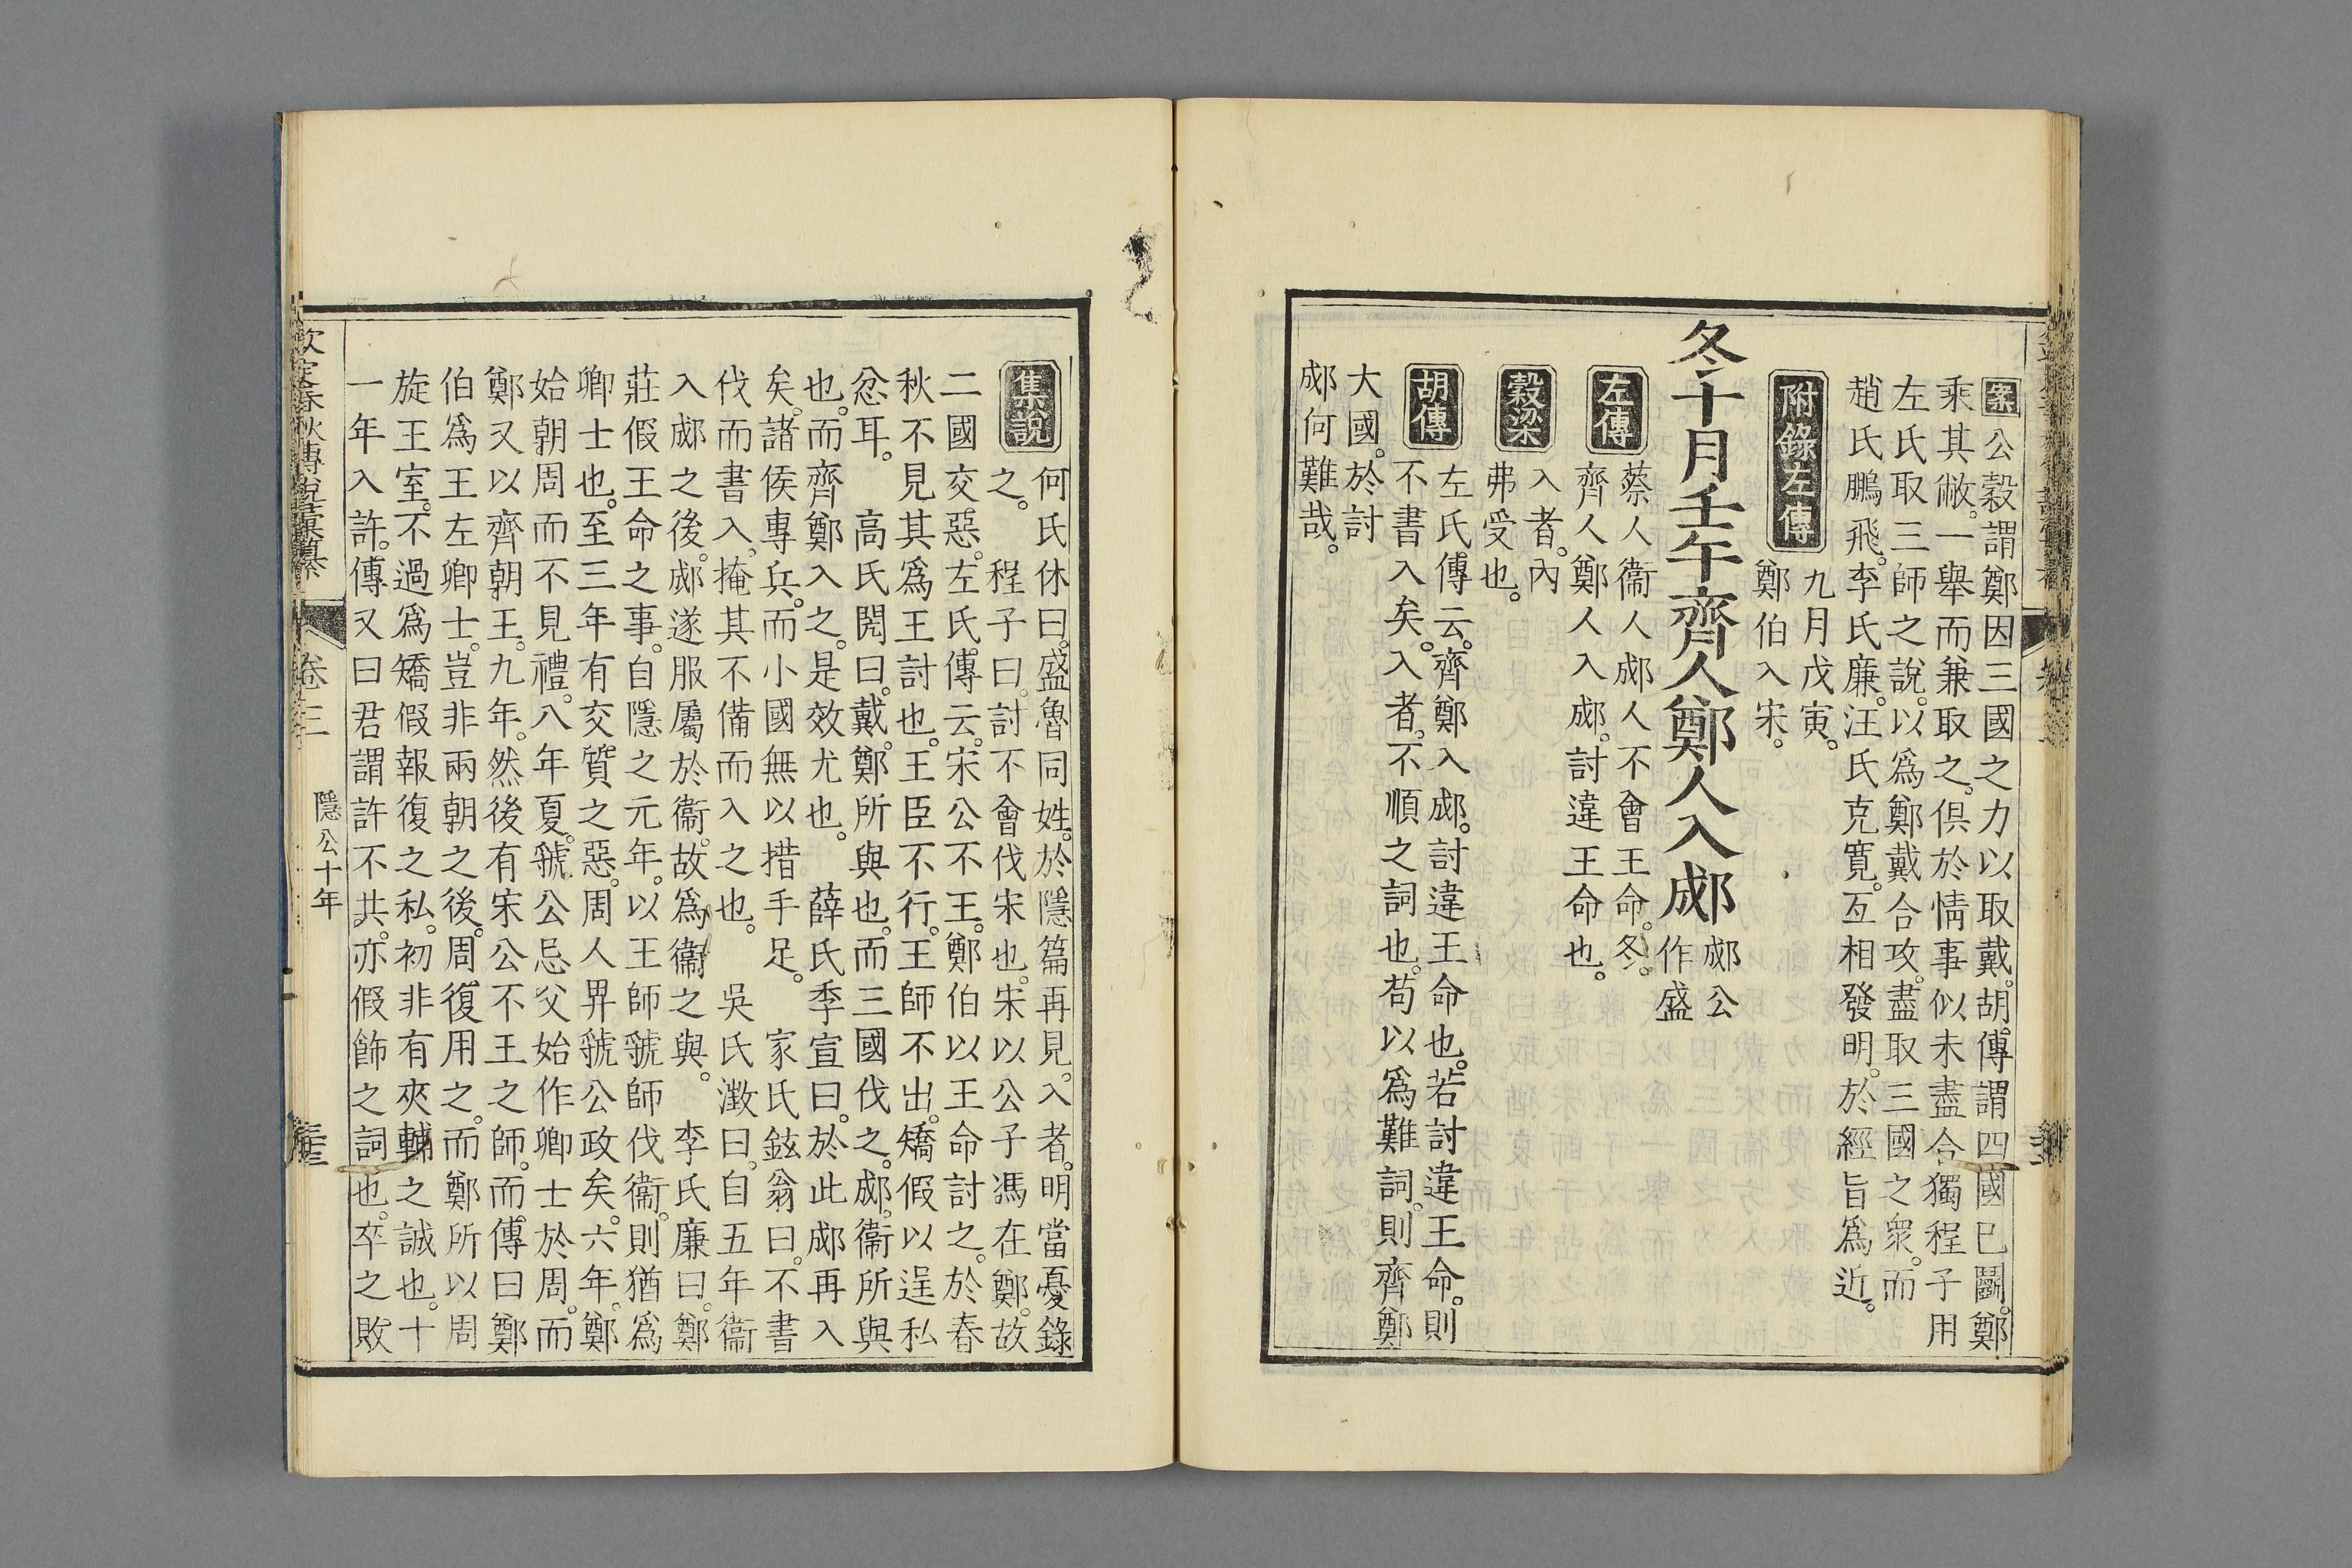 案公穀謂鄭因三國之力以取戴。胡傳謂四國已鬭。鄭
乘其敝。一舉而兼取之。俱於情事似未盡合。獨程子用
左氏取三師之說。以爲鄭戴合攻。盡取三國之衆。而
趙氏鵬飛。李氏廉。汪氏克寬。互相發明。於經旨爲近。
附錄左傳
九月戊寅。
鄭伯入宋。
冬十月壬午齊人鄭人入郕
郕公
作盛
左傳
蔡人衞人郕人不會王命。冬。
齊人鄭人入郕。討違王命也。
穀梁
入者。內
弗受也。
胡傳
左氏傳云。齊鄭入郕。討違王命也。若討違王命。則
不書入矣。入者。不順之詞也。苟以爲難詞。則齊鄭
大國。於討
郕何難哉。
集說
何氏休曰。盛魯同姓。於隱篇再見。入者。明當憂錄
之。程子曰。討不會伐宋也。宋以公子馮在鄭。故
二國交惡。左氏傳云。宋公不王。鄭伯以王命討之。於春
秋不見其爲王討也。王臣不行。王師不出。矯假以逞私
忿耳。高氏閌曰。戴。鄭所與也。而三國伐之。郕。衞所與
也。而齊鄭入之。是效尤也。薛氏季宣曰。於此郕再入
矣。諸侯專兵。而小國無以措手足。家氏鉉翁曰。不書
伐而書入。掩其不備而入之也。吳氏澂曰。自五年衞
入郕之後。郕遂服屬於衞。故爲衞之與。李氏廉曰。鄭
莊假王命之事。自隱之元年。以王師虢師伐衞。則猶爲
卿士也。至三年有交質之惡。周人畀虢公政矣。六年。鄭
始朝周而不見禮。八年夏。虢公忌父始作卿士於周。而
鄭又以齊朝王。九年。然後有宋公不王之師。而傳曰鄭
伯爲王左卿士。豈非兩朝之後。周復用之。而鄭所以周
旋王室。不過爲矯假報復之私。初非有夾輔之誠也。十
一年入許。傳又曰君謂許不共。亦假飾之詞也。卒之敗
欽定春秋傳說彙纂
卷三
隱公十年